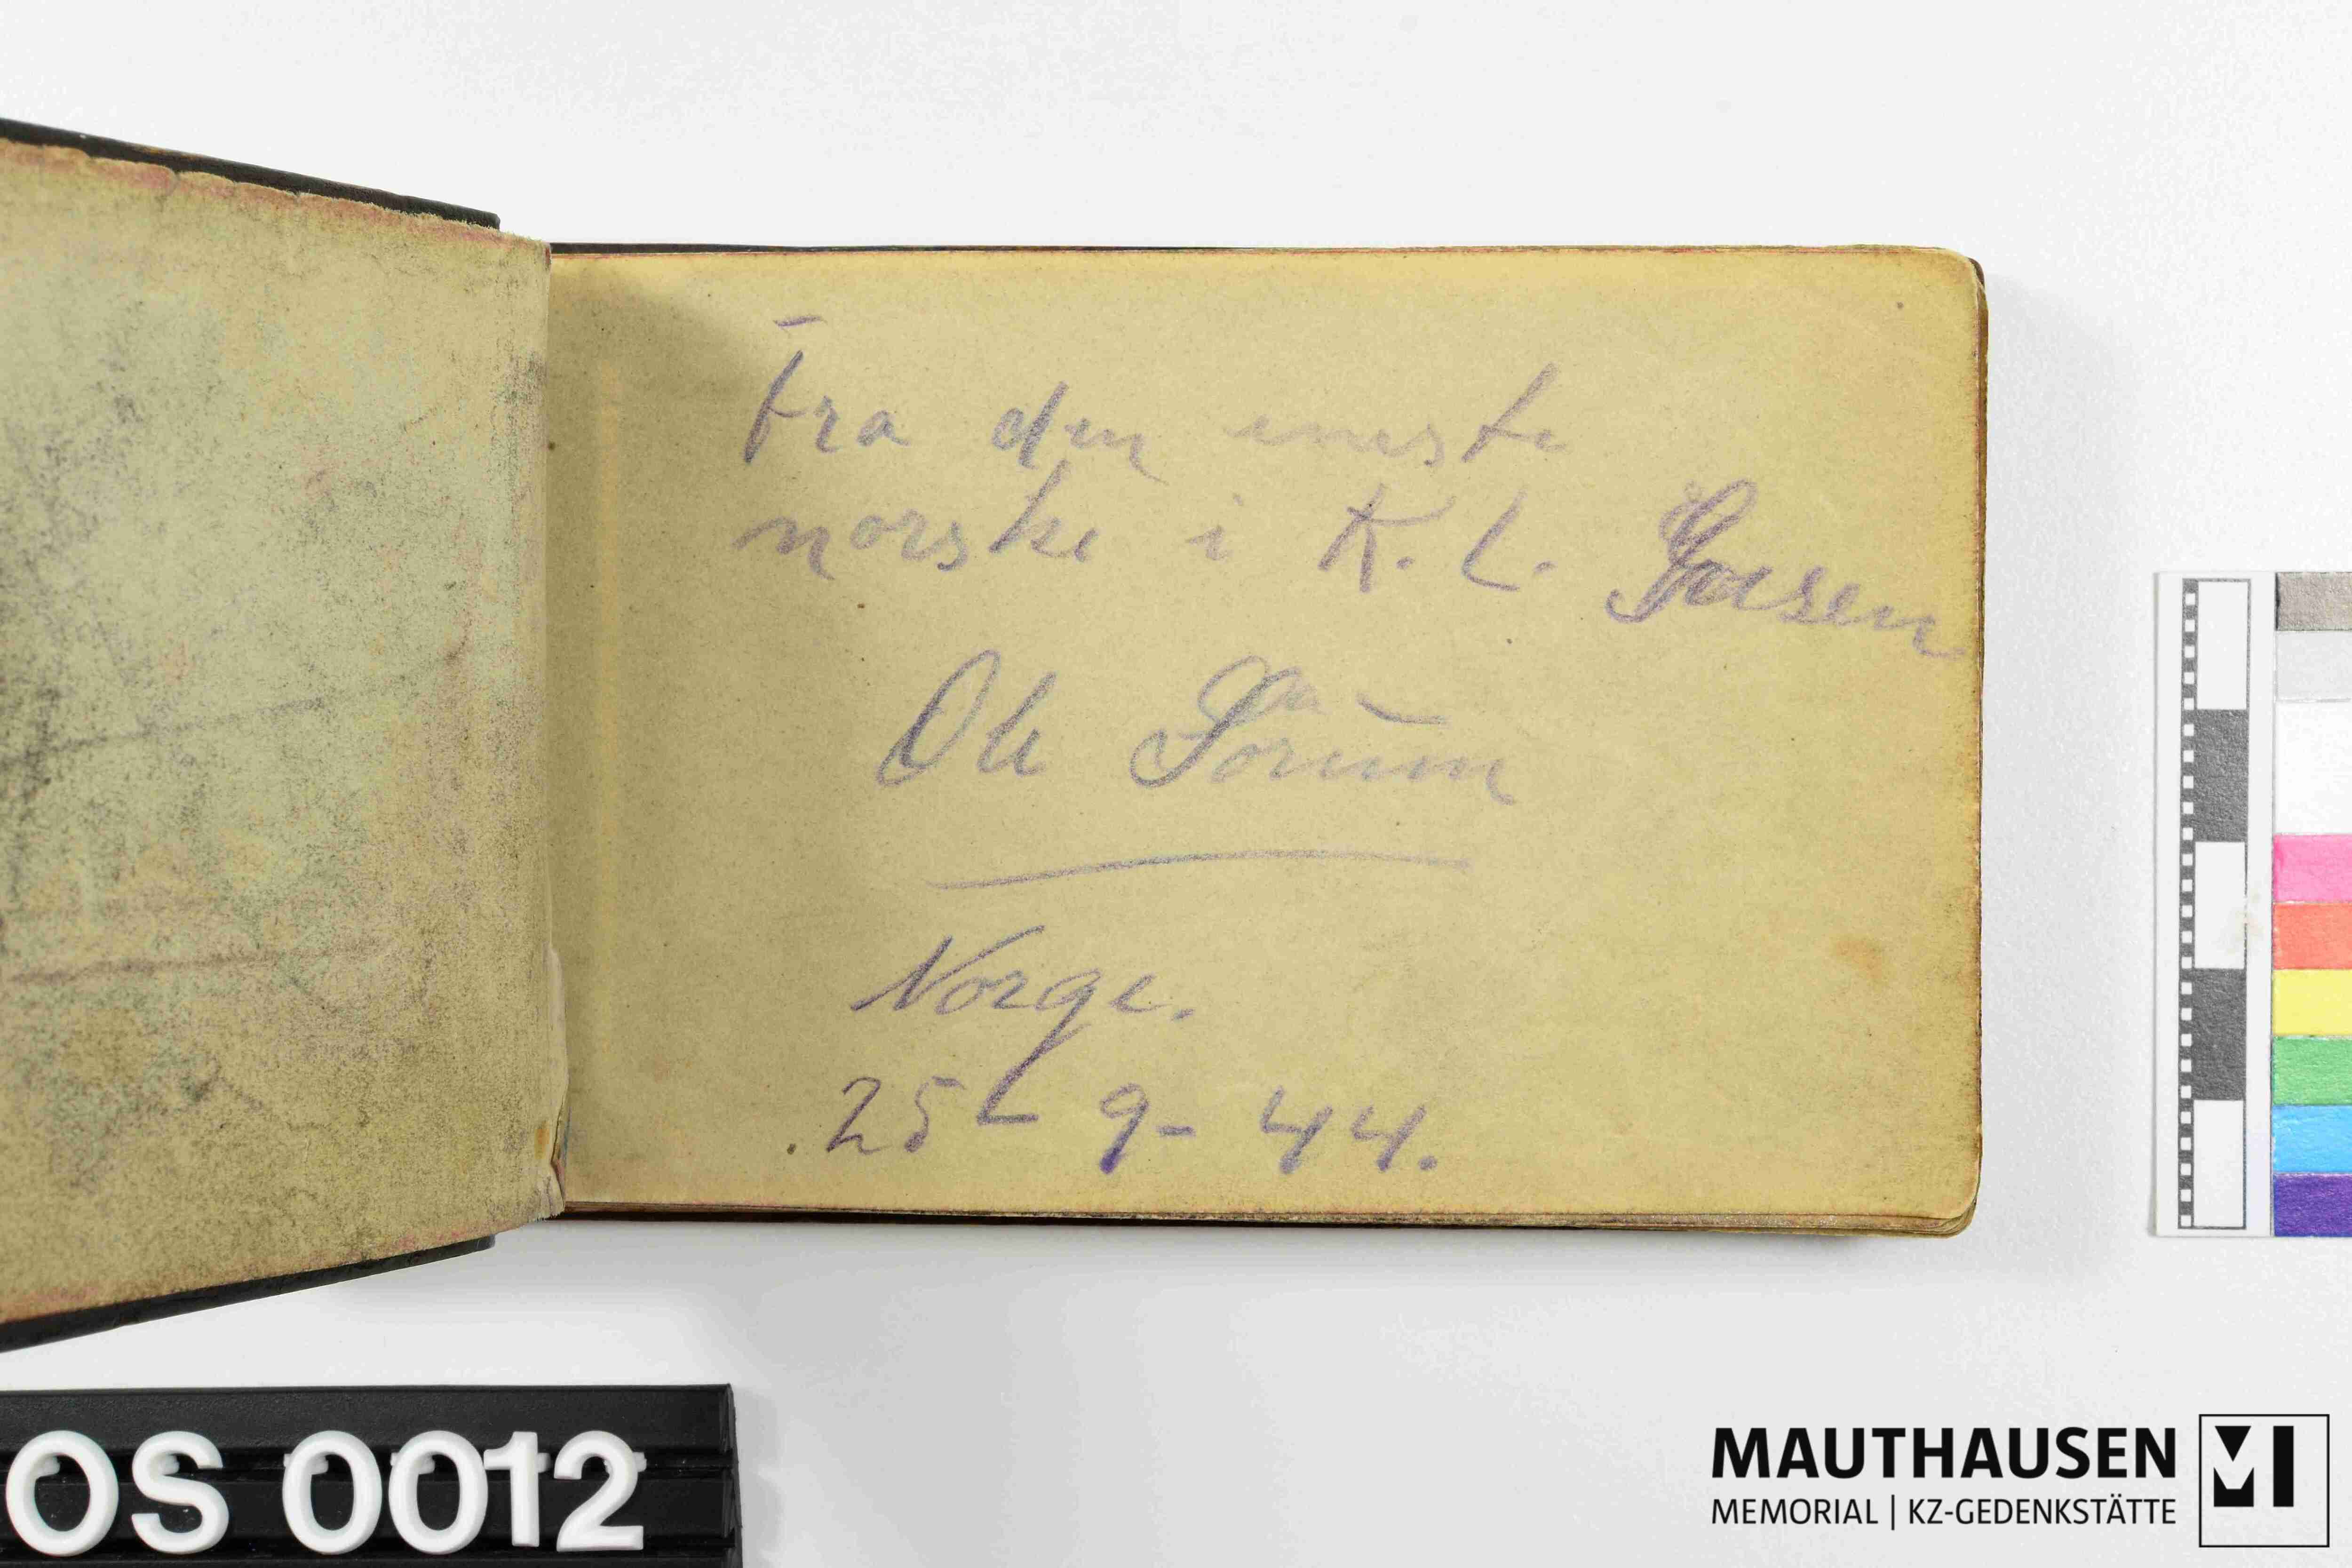 Fra den eneste
norske i K. L. Gusen
Ole Sørum
Norge.
25 - 9 - 44.
OS 0012
MAUTHAUSEN
MEMORIAL | KZ-GEDENKSTÄTTE